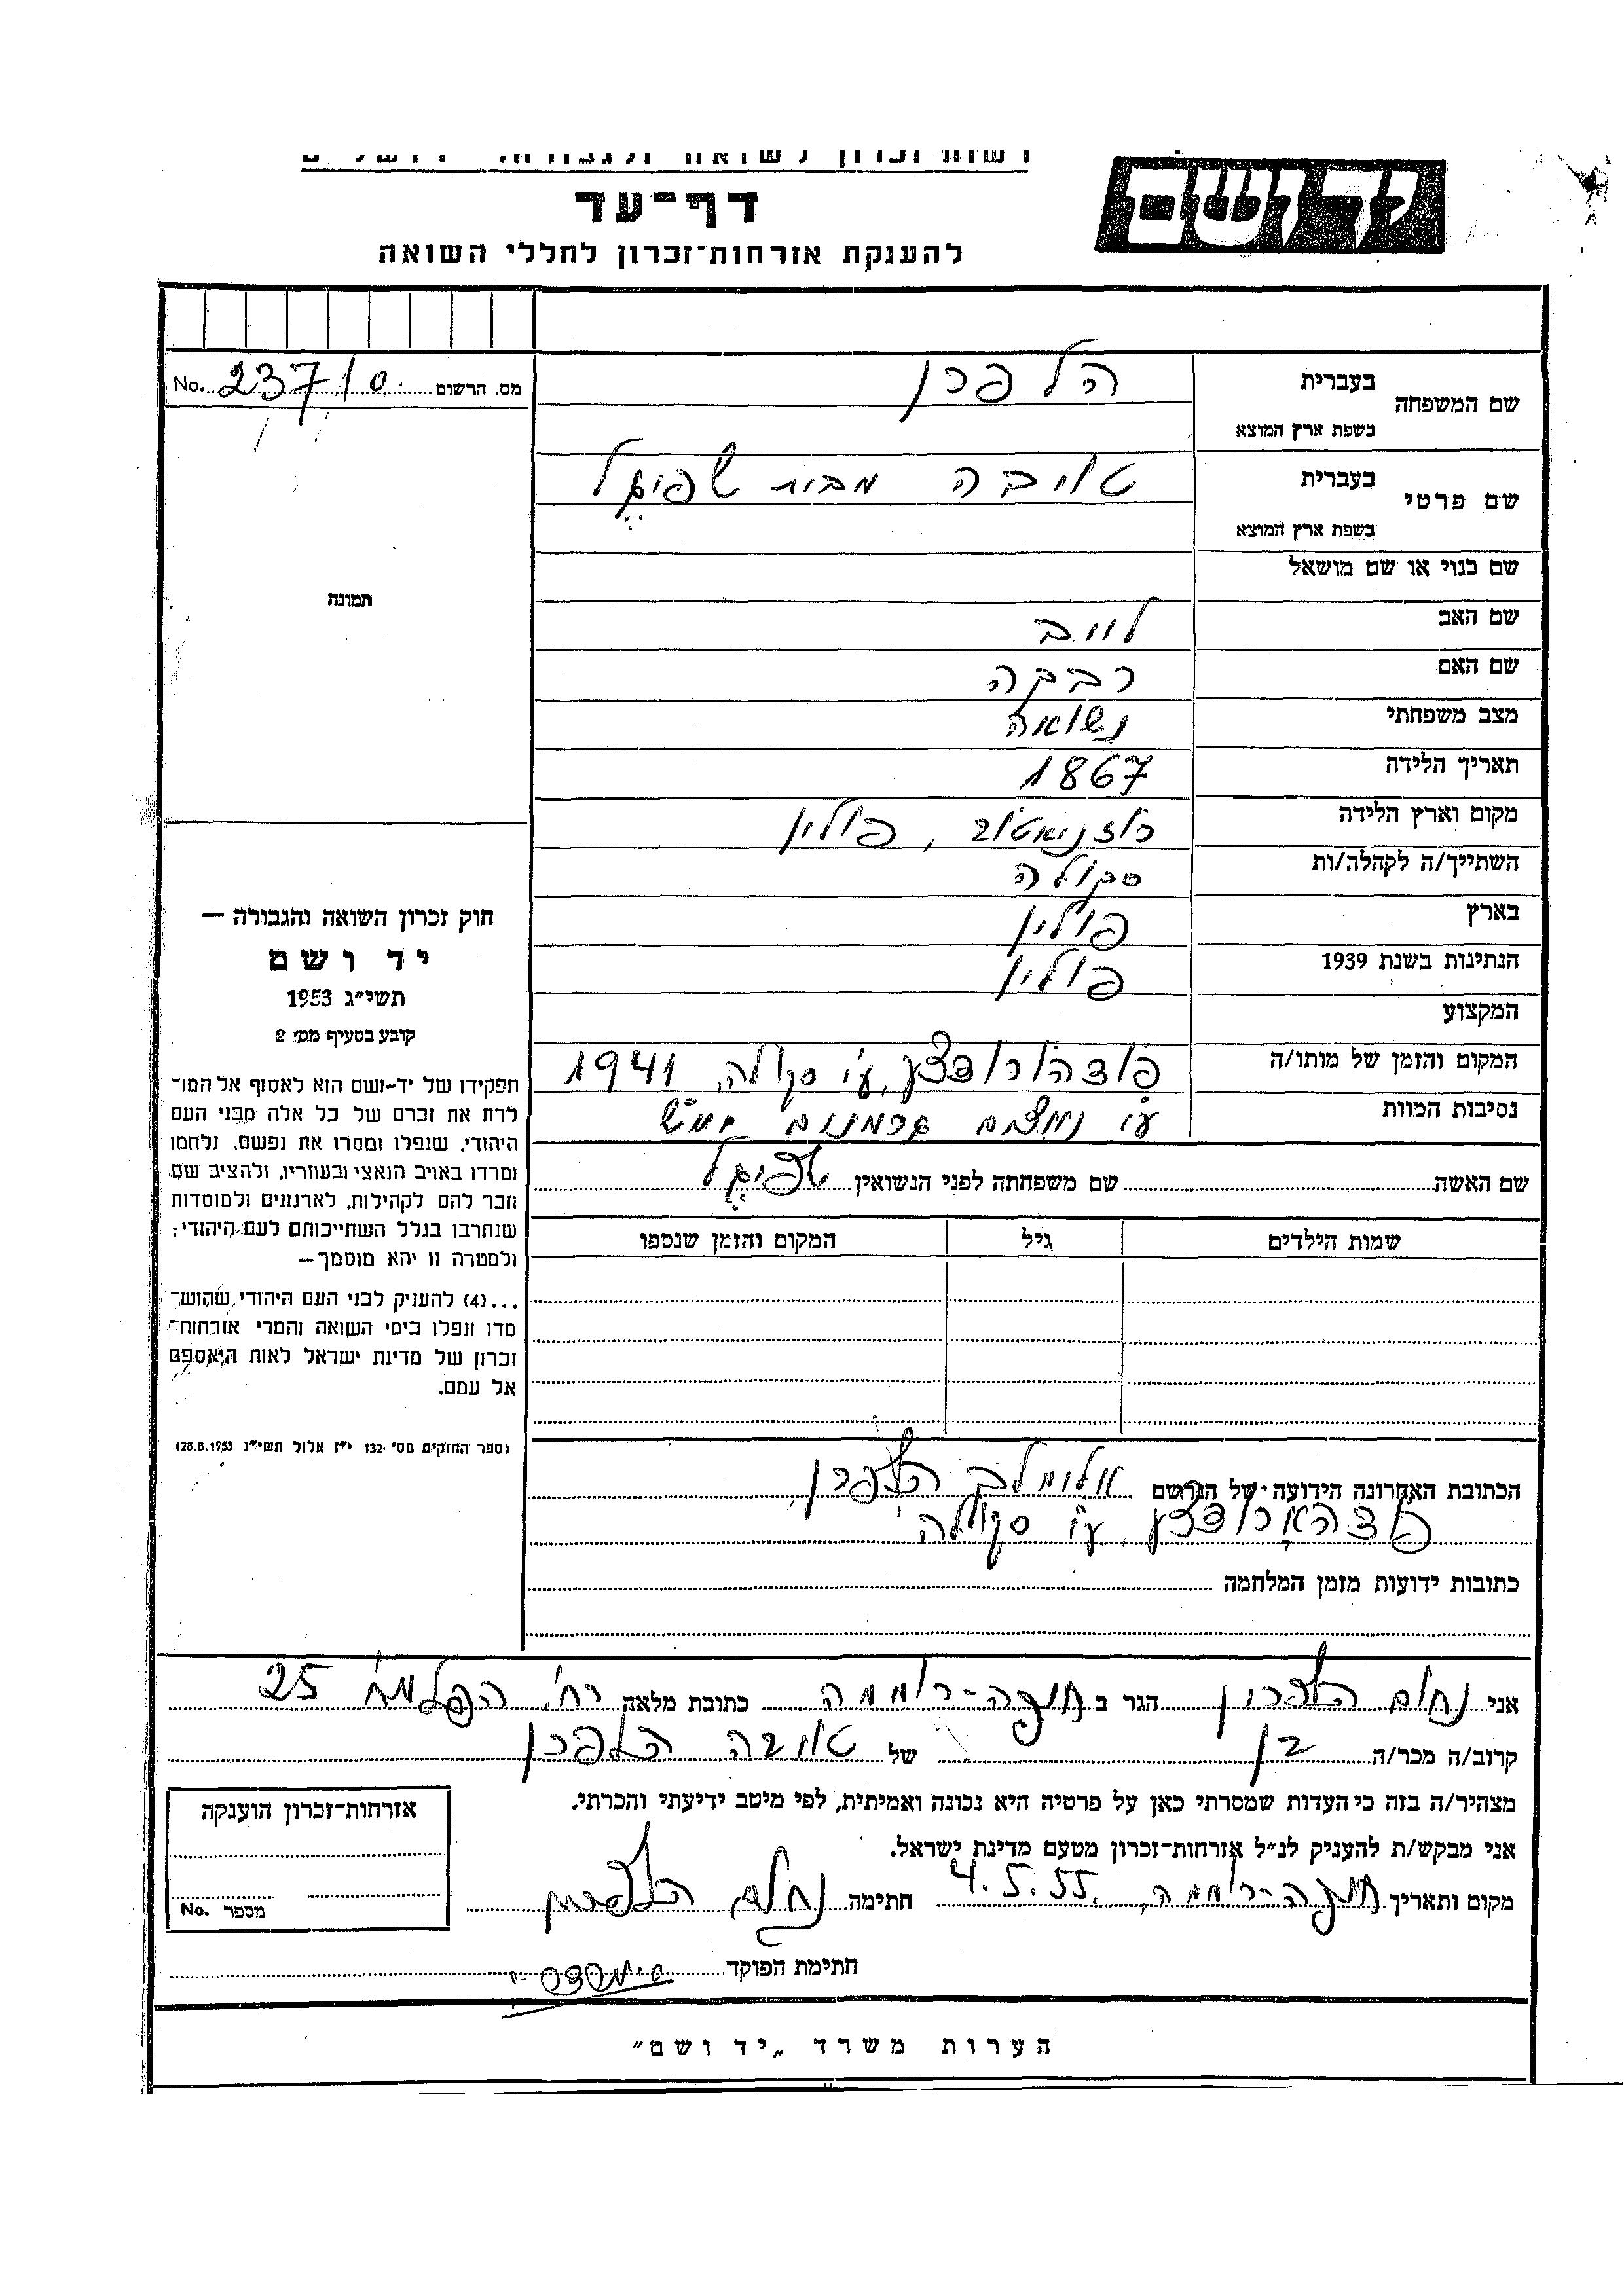 יד ושם
דף־עד
להענקת אזרחות־זכרון לחללי השואה
מס. הרשום 23710 No.
שם המשפחה בעברית הלפרן
בשפת ארץ המוצא
שם פרטי בעברית טויבה מבית שפיגל
בשפת ארץ המוצא
שם כנוי או שם מושאל
שם האב לייב
שם האם רבקה
מצב משפחתי נשואה
תאריך הלידה 1867
מקום וארץ הלידה רוזניאטוב, פולין
השתייך/ה לקהלה/ות סקולה
בארץ פולין
הנתינות בשנת 1939 פולין
המקצוע
המקום והזמן של מותו/ה ע"י סקולה, 1941
נסיבות המוות ע"י נאצים גרמנים ימ"ש
שם האשה שם משפחתה לפני הנשואין שפיגל
שמות הילדים גיל המקום והזמן שנספו
הכתובת האחרונה הידועה של הנרשם אלימלך הלפרן,
ע"י סקולה
כתובות ידועות מזמן המלחמה
תמונה
חוק זכרון השואה והגבורה —
יד ושם
תשי״ג 1953
קובע בסעיף מס׳ 2
תפקידו של יד-ושם הוא לאסוף אל המו־
לדת את זכרם של כל אלה מבני העם
היהודי, שנפלו ומסרו את נפשם, נלחמו
ומרדו באויב הנאצי ובעוזריו, ולהציב שם
וזכר להם לקהילות, לארגונים ולמוסדות
שנחרבו בגלל השתייכותם לעם היהודי;
ולמטרה זו יהא מוסמך—
...(4) להעניק לבני העם היהודי שהוש־
מדו ונפלו בימי השואה והמרי אזרחות־
זכרון של מדינת ישראל לאות היאספם
אל עמם.
(ספר החוקים מס׳ 132 י״ז אלול תשי״ג 28.8.1953)
אני נחום הלפרין הגר ב חיפה-רוממה כתובת מלאה רח' הפלמ"ח 25
קרוב/ה מכר/ה בן של טויבה הלפרן
מצהיר/ה בזה כי העדות שמסרתי כאן על פרטיה היא נכונה ואמיתית, לפי מיטב ידיעתי והכרתי.
אני מבקש/ת להעניק לנ״ל אזרחות־זכרון מטעם מדינת ישראל.
מקום ותאריך חיפה-רוממה, 4.5.55. חתימה נחום הלפרין
חתימת הפוקד
אזרחות־זכרון הוענקה
מספר No.
הערות משרד „יד ושם״